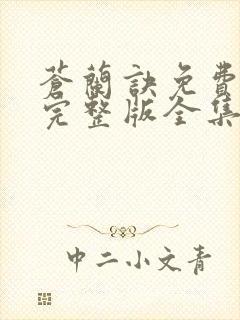 蒼蘭訣免費
完整版全集
中二小文青